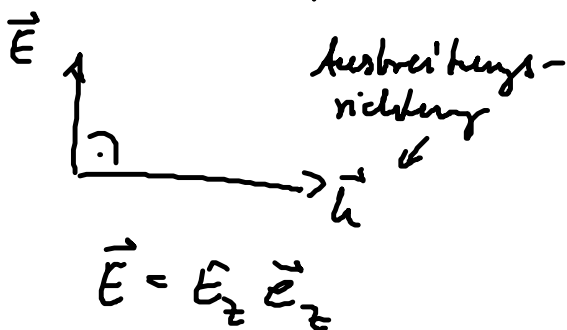 E⃗
Ausbreitungs-
richtung
k⃗
E⃗ = Ê_z e⃗_z